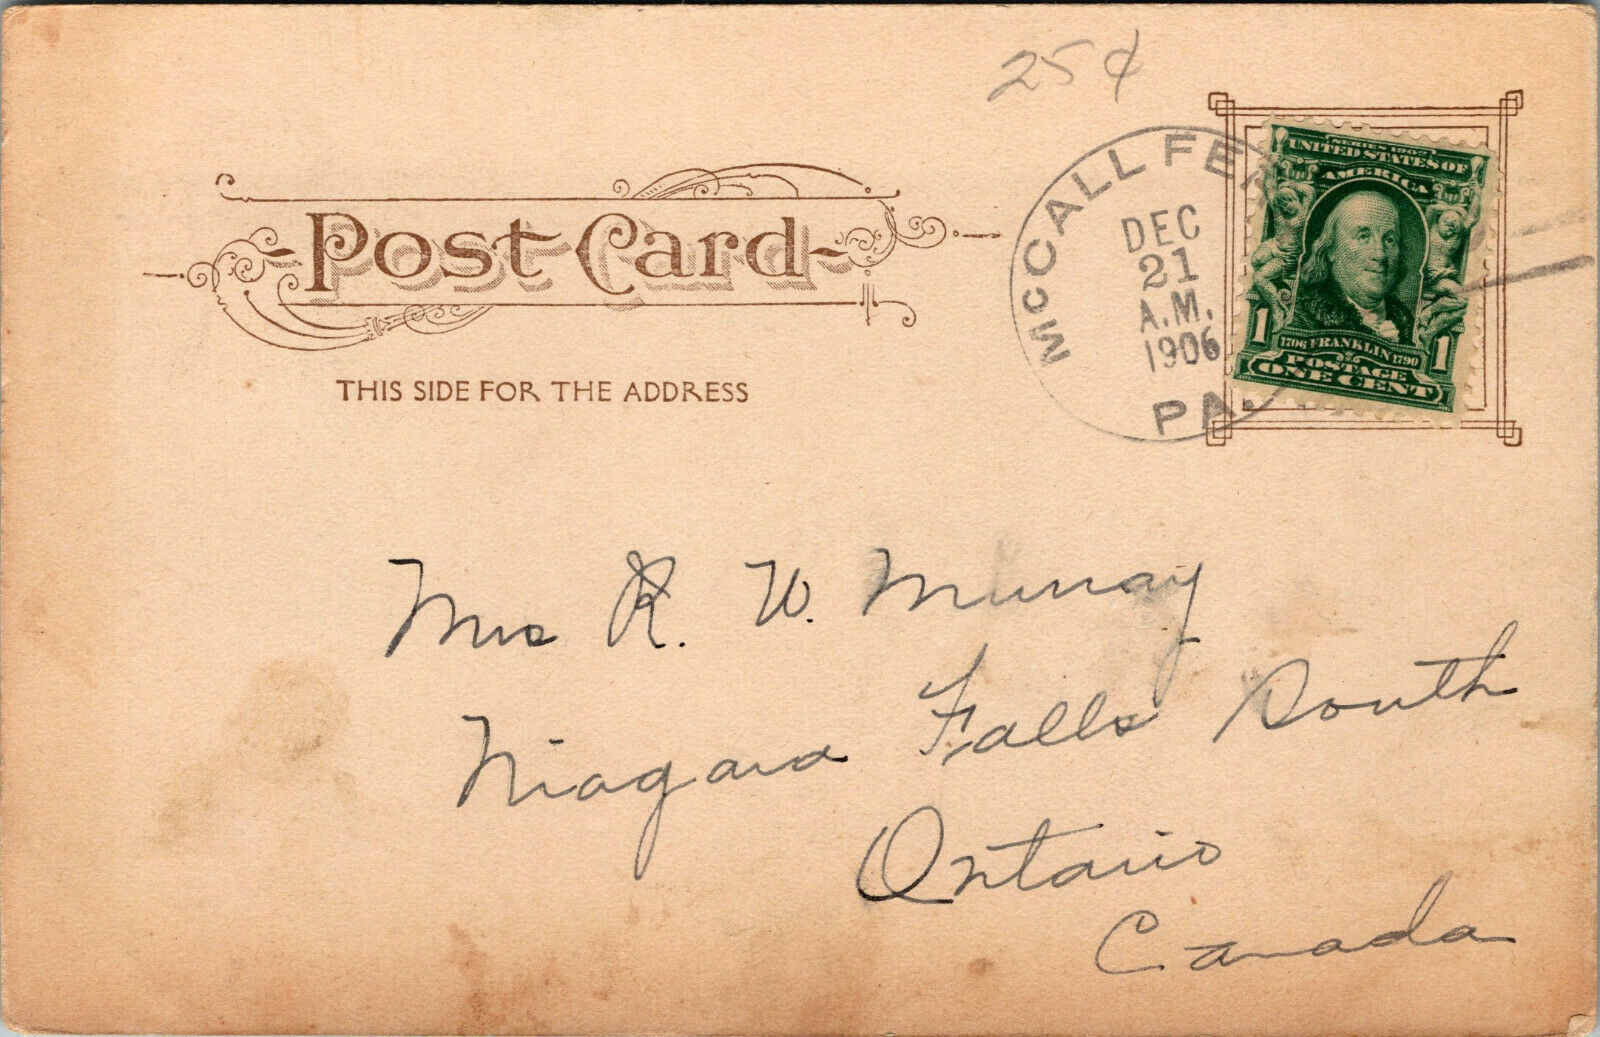 25¢
Post Card
THIS SIDE FOR THE ADDRESS
McCALL FE
DEC
21
A.M.
1906
PA.
SERIES 1902
UNITED STATES OF
AMERICA
1 1
1706 FRANKLIN 1790
POSTAGE
ONE CENT
Mrs R. W. Murray
Niagara Falls South
Ontario
Canada